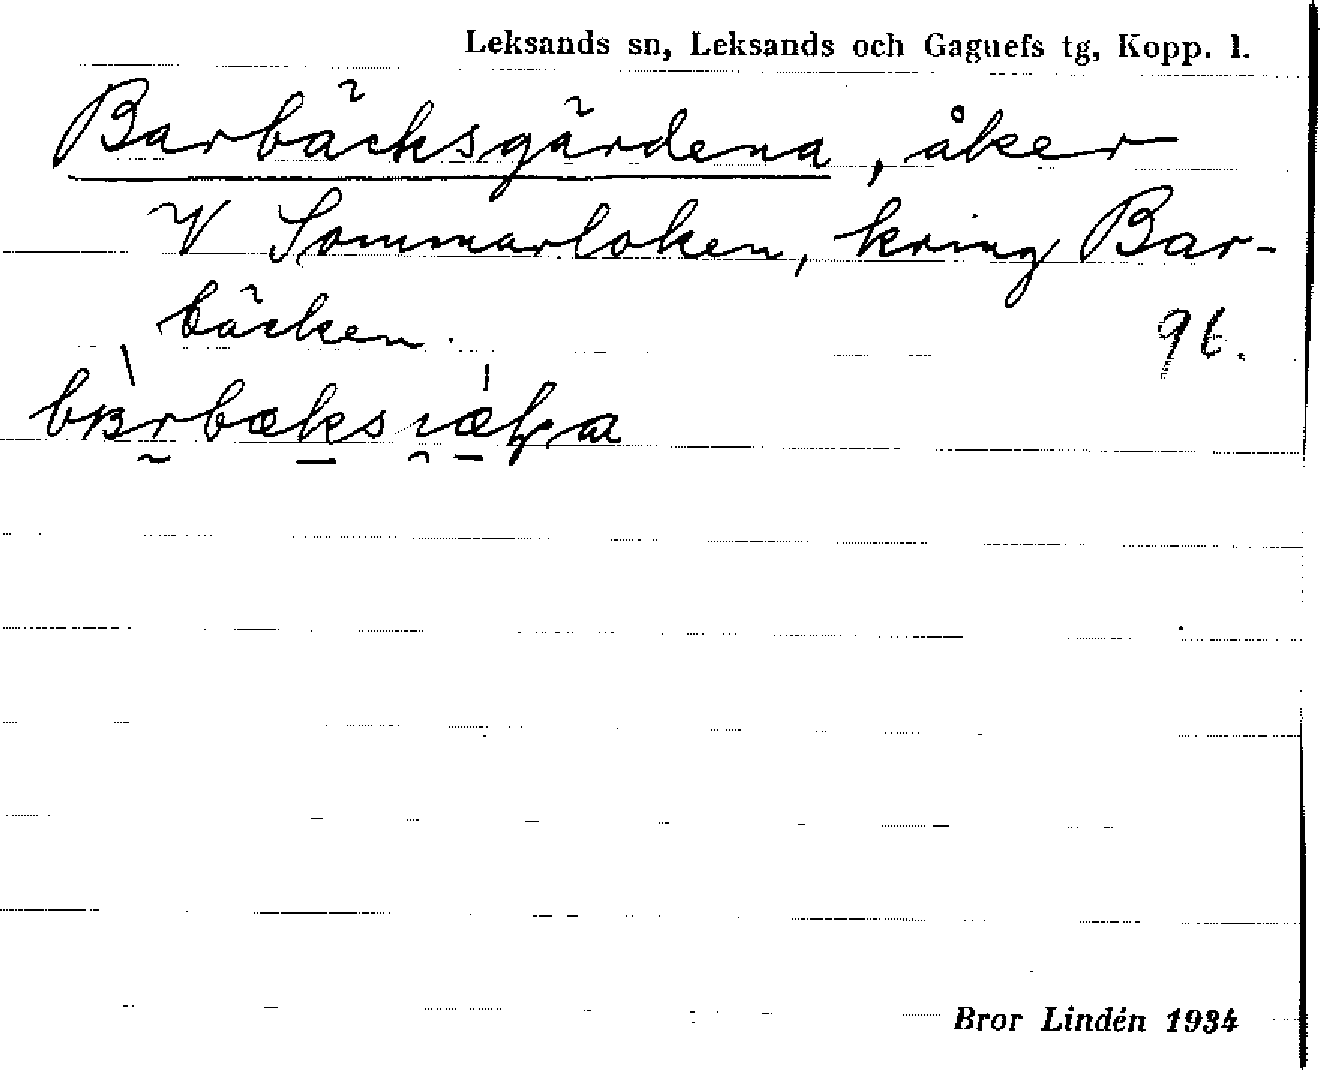 Leksands sn, Leksands och Gagnefs tg, Kopp. l.
Barbäcksgärdena, åker
V Sommarloken, kring Bar-
bäcken.
Bror Lindén 1934